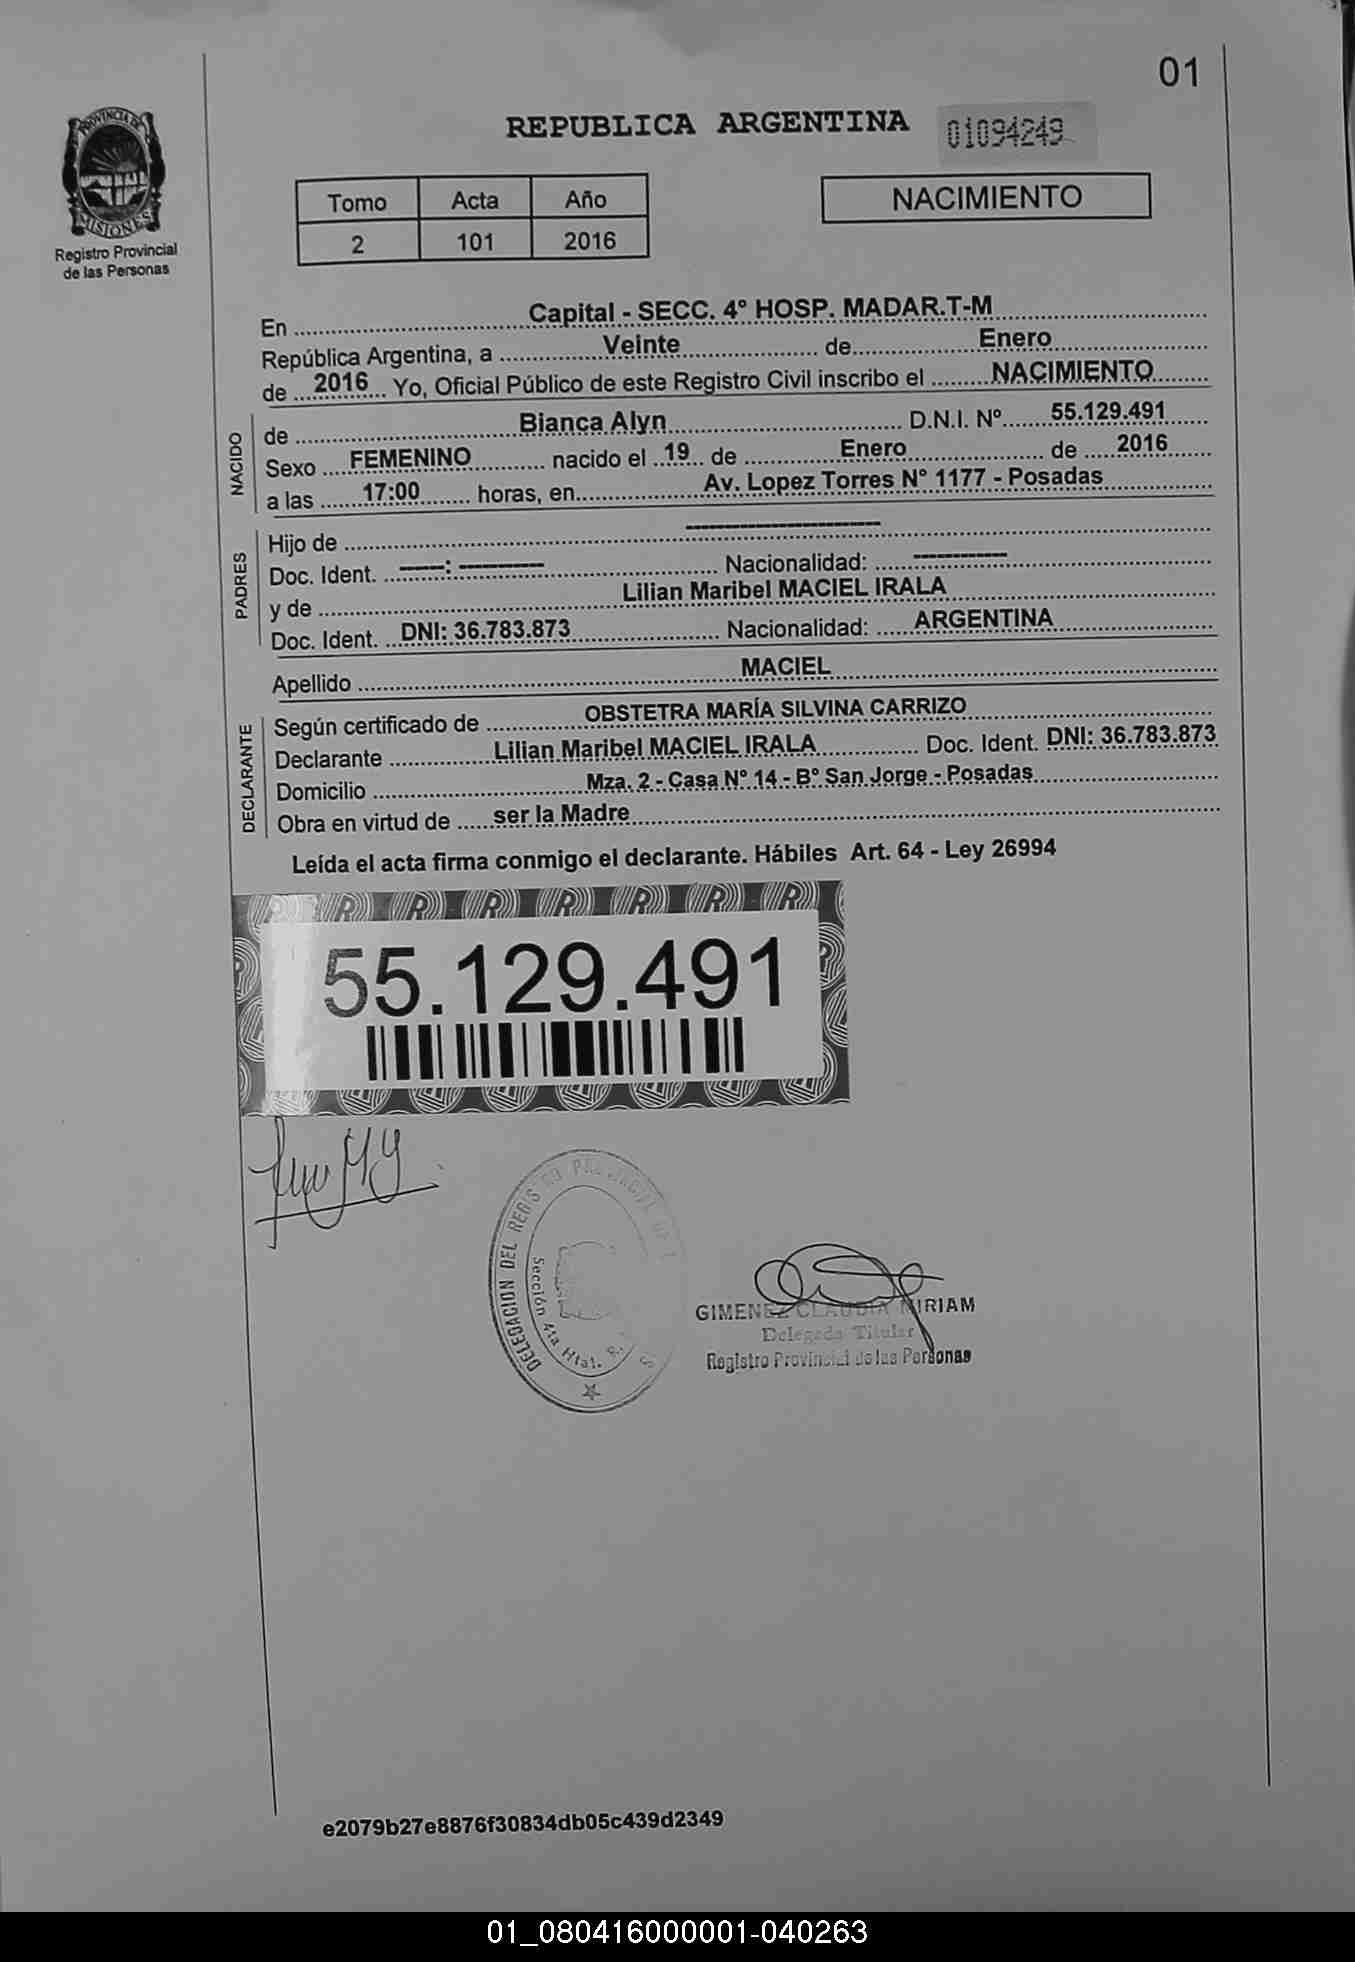 01
REPUBLICA ARGENTINA
01094249
PROVINCIA DE
MISIONES
Registro Provincial
de las Personas
Tomo Acta Año
2 101 2016
NACIMIENTO
En Capital - SECC. 4° HOSP. MADAR.T-M
República Argentina, a Veinte de Enero
de 2016 Yo, Oficial Público de este Registro Civil inscribo el NACIMIENTO
NACIDO
de Bianca Alyn D.N.I. Nº 55.129.491
Sexo FEMENINO nacido el 19 de Enero de 2016
a las 17:00 horas, en Av. Lopez Torres N° 1177 - Posadas
PADRES
Hijo de ------------------------
Doc. Ident. -----: ---------- Nacionalidad: -----------
y de Lilian Maribel MACIEL IRALA
Doc. Ident. DNI: 36.783.873 Nacionalidad: ARGENTINA
Apellido MACIEL
DECLARANTE
Según certificado de OBSTETRA MARÍA SILVINA CARRIZO
Declarante Lilian Maribel MACIEL IRALA Doc. Ident. DNI: 36.783.873
Domicilio Mza. 2 - Casa N° 14 - B° San Jorge - Posadas
Obra en virtud de ser la Madre
Leída el acta firma conmigo el declarante. Hábiles Art. 64 - Ley 26994
55.129.491
DELEGACION DEL REGISTRO PROVINCIAL DE
Sección 4ta Htal. R.
GIMENEZ CLAUDIA MIRIAM
Delegada Titular
Registro Provincial de las Personas
e2079b27e8876f30834db05c439d2349
01_080416000001-040263